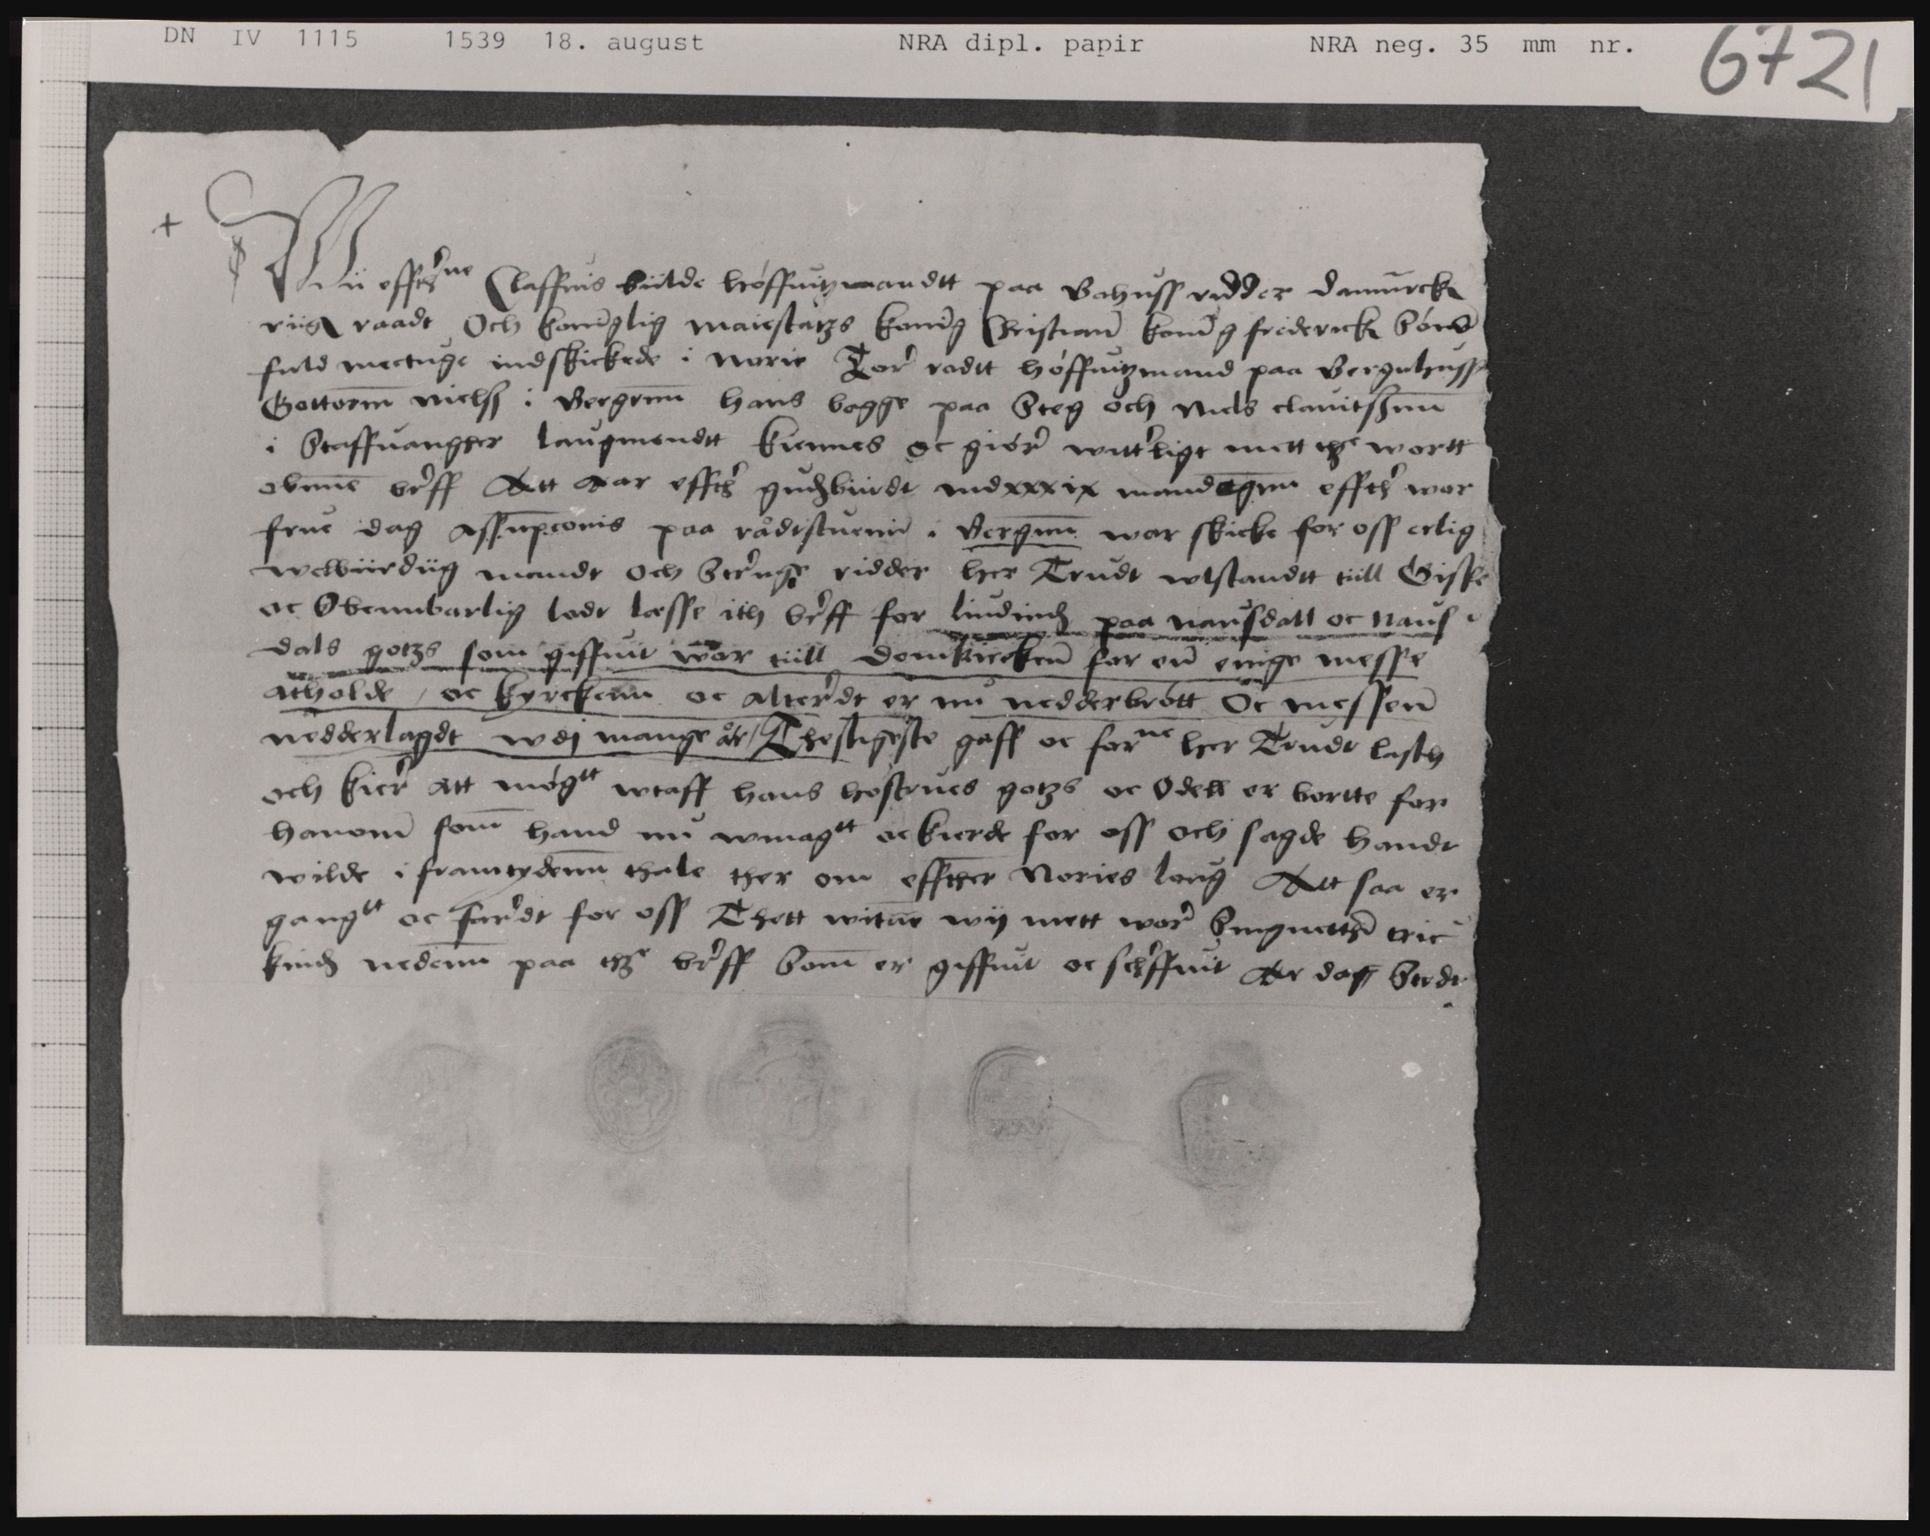 DN IV 1115 1539 18. august NRA dipl. papir NRA neg. 35 mm nr. 6721
+
Wii effthrne Claffuis biilde höffuitzmandtt paa Bahuss ridder danmrcks
riigs raadt Och koninglig maiestatzs koning Christians koning frederick Söns
fuld mectuge indskickede i norie Tor rodtt höffuitzmand paa Bergnhuss
Gottorm nielss i Bergenn hans bagge paa Steg och Niels clauitssnn
i Staffuangher laugmendtt kiennes oc giör witterligt mett thz wortt
obnne breff Att Aar effthr gudzbiirdt mdxxxix mandagnn effthr wor
frue dag assupconis paa rådtstuenn i Bergnn war skicke for oss erlig
welbiirdiig mandt Och Strenge ridder her Trudt wlstandtt tiill Giske
oc Obennbarlig lodt læsse ith breff for liudindz paa nausdall oc naus
dals gotzs som giffuit wor tiill domkircken for en euige messe
atholde / oc kyrckenn oc alterdt er nu nedderbrött Oc messen
nedderlagdt wdj mange åår / Thesligeste gaff oc forne her Trudt lasth
och kier Att mögtt wtaff hans höstrues gotzs oc Odell er bortte for
hanom som hand nu wmagtt ockierde for oss och sagde handt
wilde i framtydenn thale ther om effther Nories loug Att saa er
gangtt oc fardt for oss Thett witne wij mett wor Singnetthr tric
kindz nedenn paa thz breff Som er giffuit oc schffuit Ar dag Stedt